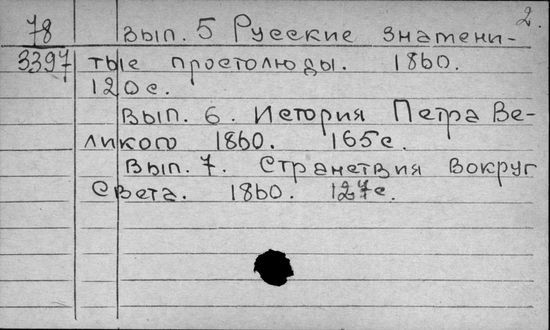 2.
78 Вып. 5 Русские знамени-
3397 тые простолюды. 1860.
120с.
Вып. 6. История Петра Ве-
ликого 1860. 165с.
Вып. 7. Странствия вокруг
света. 1860. 127с.